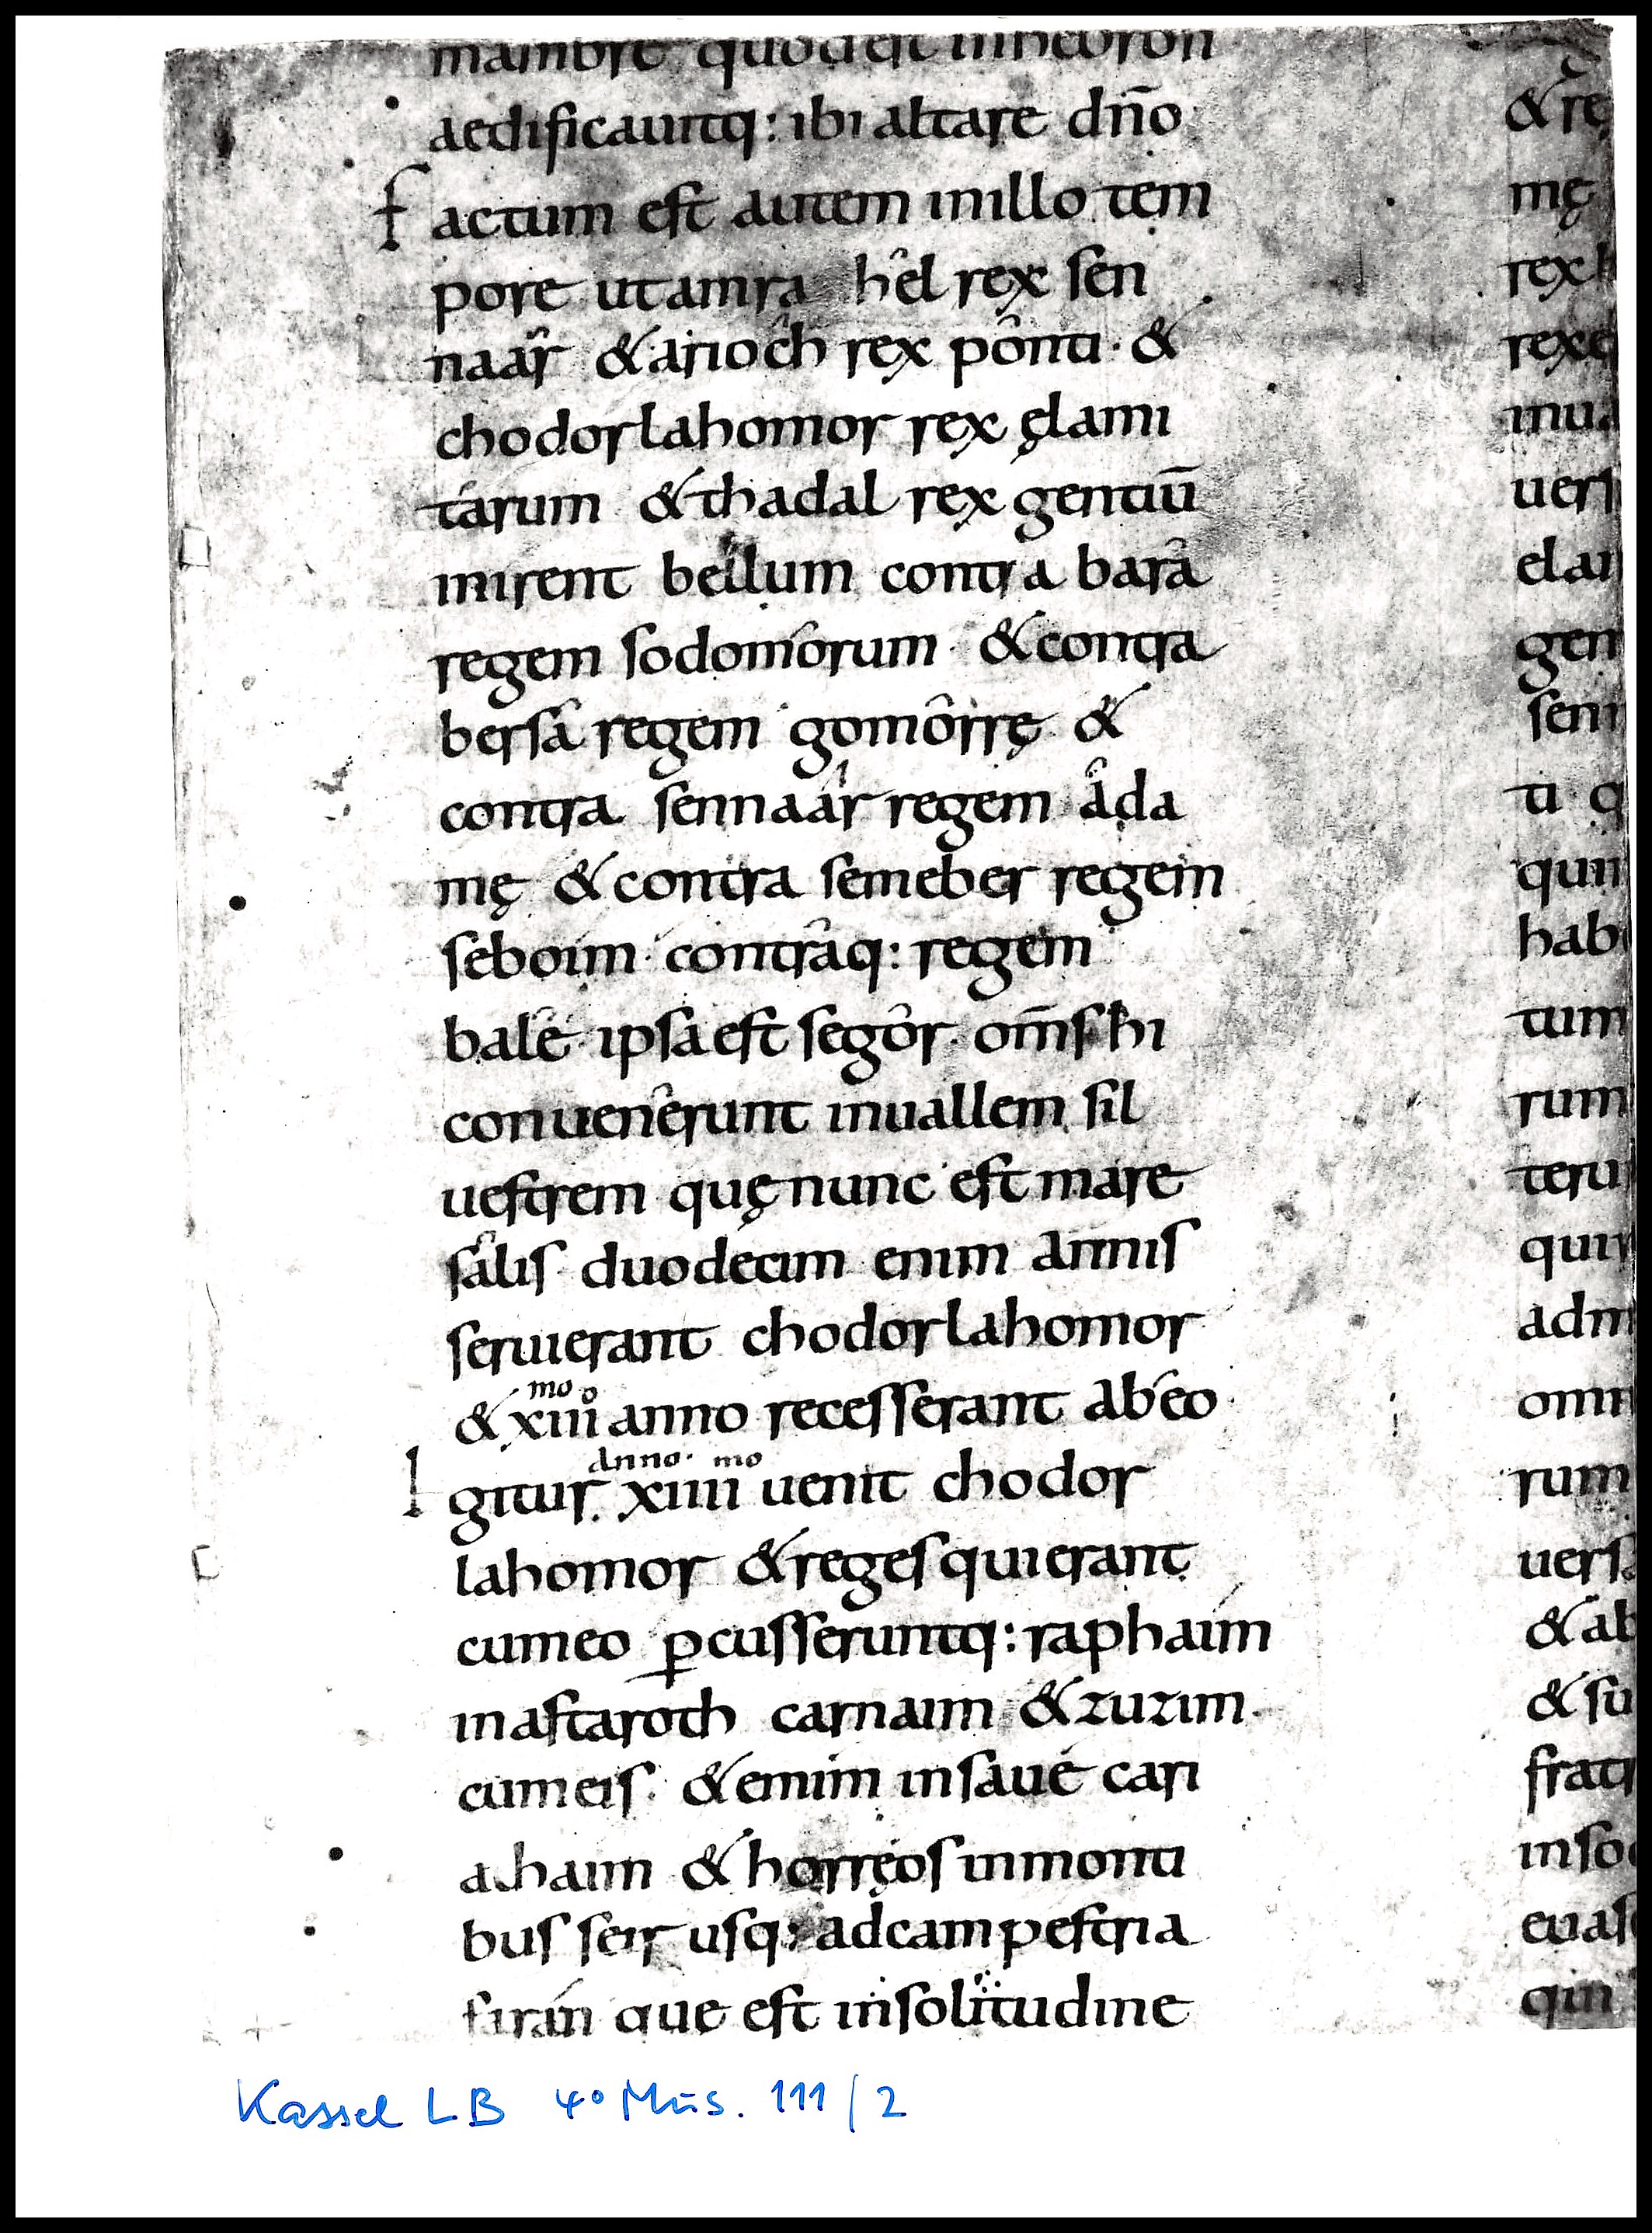 mambre quod est inhebron
aedificauitq: ibi altare dn̄o
Factum est autem inillo tem
pore utamra hêl rex sen
naâr & arioĉh rex pônti · &
chodorlahomor rex ęlami
tárum & thadal rex gentiū
inirent bellum contra barâ
regem sodomórum · & contra
bersâ regem gomôrrę &
contra sennaâr regem âda
mę & contra semeber regem
seboim · contrâq: regem
balê · ipsa est segôr · om̄s hi
conuenêrunt inuallem sil
uestrem quę nunc est mare
sâlis duodécim enim annis
seruierant chodorlahomor
& xiii mo o anno recesserant abéo
Igitur anno · xiiii mo uenit chodor
lahomor & reges qui erant
cumeo ꝑcusseruntq: raphaím
inastaroth carnaim & zuzim
cumeis · & emím insaué cari
athaim & horręos inmonti
bus seir usq: adcampestria
firán que est insolitudine
& rę
mę
rex
rex
inua
uers
elam
gen
senn
ti q
quin
hab
tum
rum
teru
quin
adm
omn
rum
uers
& ab
& su
fratr
inso
euas
qin
Kassel LB 4° Ms. 111/2